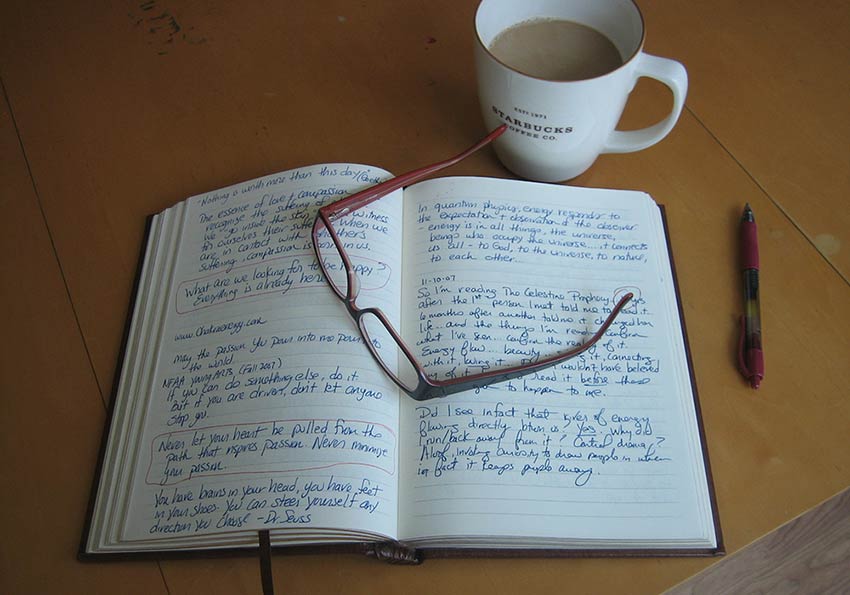 EST? 1971
STARBUCKS
COFFEE CO.
"Nothing is worth more than this day"
The essence of love & compassion
recognize the suffering of witness
we go inside the
for ourselves their suffering when we
are in contact with another's
suffering, compassion is born in us.
What are we looking for to be happy?
Everything is already here
www.Chakraenergy.com
may the passion you pour into me pour into
the world.
NFAA young ARTS (Fall 2007)
If you can do something else, do it
but if you are driven, don't let anyone
stop you.
Never let your heart be pulled from the
path that inspires passion. Never minimize
your passion.
You have brains in your head, you have feet
in your shoes. You can steer yourself any
direction you choose - Dr. Seuss
In quantum physics, energy responds to
the expectation & observation of the observer
- energy is in all things, the universe,
beings who occupy the universe... it connects
us all - to God, to the universe, to nature,
to each other.
11-10-07
So I'm reading The Celestine Prophecy
after the 1st person I met told me to read it
6 months after another told me it changed her
life... and the things I'm reading confirm
what I've seen... confirm the reality of it.
Energy flow... beauty it, connecting
with it, I wouldn't have believed
of it read it before these
to happen to me.
Did I see in fact that of energy
flowing directly between us, yes. Why did
I run/back away from it? Control drama?
Aloof, invoking curiosity to draw people in when
in fact it keeps people away.